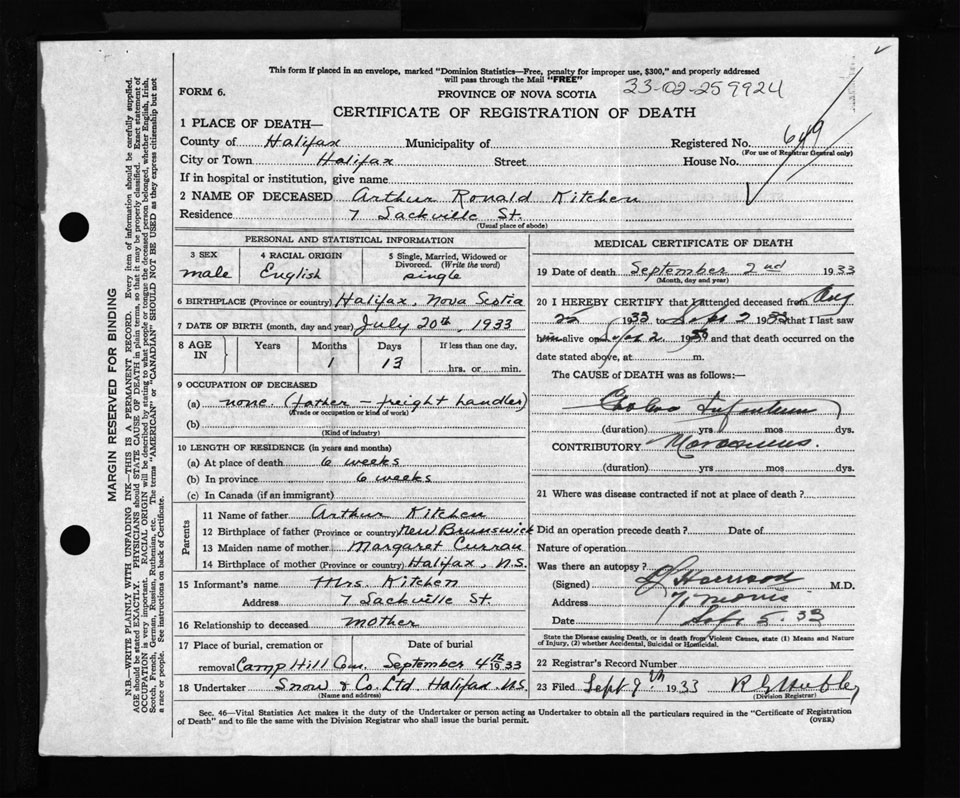 This form if placed in an envelope, marked "Dominion Statistics—Free, penalty for improper use, $300," and properly addressed
will pass through the Mail "FREE"
FORM 6. PROVINCE OF NOVA SCOTIA 33-02-259924
CERTIFICATE OF REGISTRATION OF DEATH
1 PLACE OF DEATH—
County of Halifax Municipality of Registered No. 649
(For use of Registrar General only)
City or Town Halifax Street House No.
If in hospital or institution, give name
2 NAME OF DECEASED Arthur Ronald Kitchen
Residence 7 Sackville St.
(Usual place of abode)
PERSONAL AND STATISTICAL INFORMATION
3 SEX male
4 RACIAL ORIGIN English
5 Single, Married, Widowed or Divorced. (Write the word) single
6 BIRTHPLACE (Province or country) Halifax, Nova Scotia
7 DATE OF BIRTH (month, day and year) July 20th, 1933
8 AGE IN Years Months Days If less than one day,
1 13 hrs. or min.
9 OCCUPATION OF DECEASED
(a) none. (father - freight handler)
(Trade or occupation or kind of work)
(b)
(Kind of industry)
10 LENGTH OF RESIDENCE (in years and months)
(a) At place of death 6 weeks
(b) In province 6 weeks
(c) In Canada (if an immigrant)
Parents
11 Name of father Arthur Kitchen
12 Birthplace of father (Province or country) New Brunswick
13 Maiden name of mother Margaret Curran
14 Birthplace of mother (Province or country) Halifax, N.S.
15 Informant's name Mrs. Kitchen
Address 7 Sackville St.
16 Relationship to deceased mother
17 Place of burial, cremation or Date of burial
removal Camp Hill Cem. September 4th 1933
18 Undertaker Snow & Co. Ltd. Halifax N.S.
(Name and address)
MEDICAL CERTIFICATE OF DEATH
19 Date of death September 2nd 1933
(Month, day and year)
20 I HEREBY CERTIFY that I attended deceased from Aug
22 1933 to Sept 2 1933 that I last saw
him alive on Sept 2 1933 and that death occurred on the
date stated above, at m.
The CAUSE of DEATH was as follows:—
Cholera Infantum
(duration) yrs mos dys.
CONTRIBUTORY Marasmus.
(duration) yrs mos dys.
21 Where was disease contracted if not at place of death?
Did an operation precede death? Date of
Nature of operation
Was there an autopsy?
(Signed) M.D.
Address 71 Morris
Date Sept 5. 33
State the Disease causing Death, or in death from Violent Causes, state (1) Means and Nature
of Injury, (2) whether Accidental, Suicidal or Homicidal.
22 Registrar's Record Number
23 Filed Sept 9th 1933
(Division Registrar)
Sec. 46—Vital Statistics Act makes it the duty of the Undertaker or person acting as Undertaker to obtain all the particulars required in the "Certificate of Registration
of Death" and to file the same with the Division Registrar who shall issue the burial permit. (OVER)
MARGIN RESERVED FOR BINDING
N.B.—WRITE PLAINLY WITH UNFADING INK—THIS IS A PERMANENT RECORD. Every item of information should be carefully supplied.
AGE should be stated EXACTLY. PHYSICIANS should STATE CAUSE OF DEATH in plain terms, so that it may be properly classified. Exact statement of
OCCUPATION is very important. RACIAL ORIGIN will be described by stating to what people or tongue the deceased person belonged, whether English, Irish,
Scotch, French, German, Russian, Ruthenian, etc. The terms "AMERICAN" or "CANADIAN" SHOULD NOT BE USED as they express citizenship but not
a race or people. See instructions on back of Certificate.